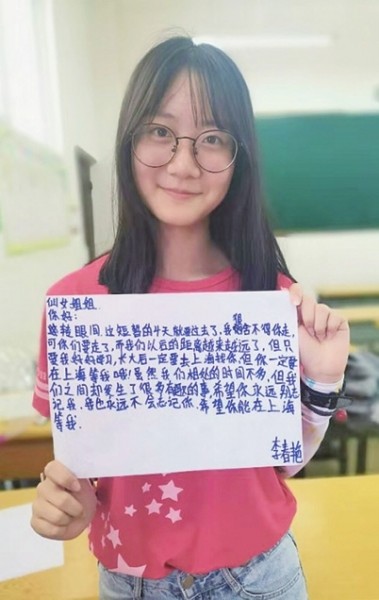 仙女姐姐.
你好:
转眼间,短暂的4天就要过去了,我很舍不得你走,
可你们要走了,而我们以后的距离越来越远了,但只
要我好好学习,长大后一定要去上海找你,但你一定要
在上海等我哦!虽然我们相处的时间不多,但我
们之间却发生了很多有趣的事,希望你永远别忘
记我,我也永远不会忘记你,希望你能在上海
等我.
李春艳